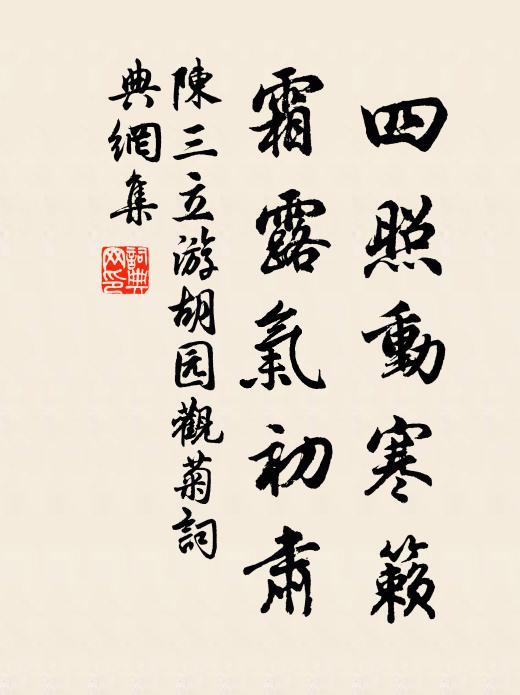 四照動寒籟
霜露氣初肅
陳三立游胡园觀菊詞
典網集
詞典
网印